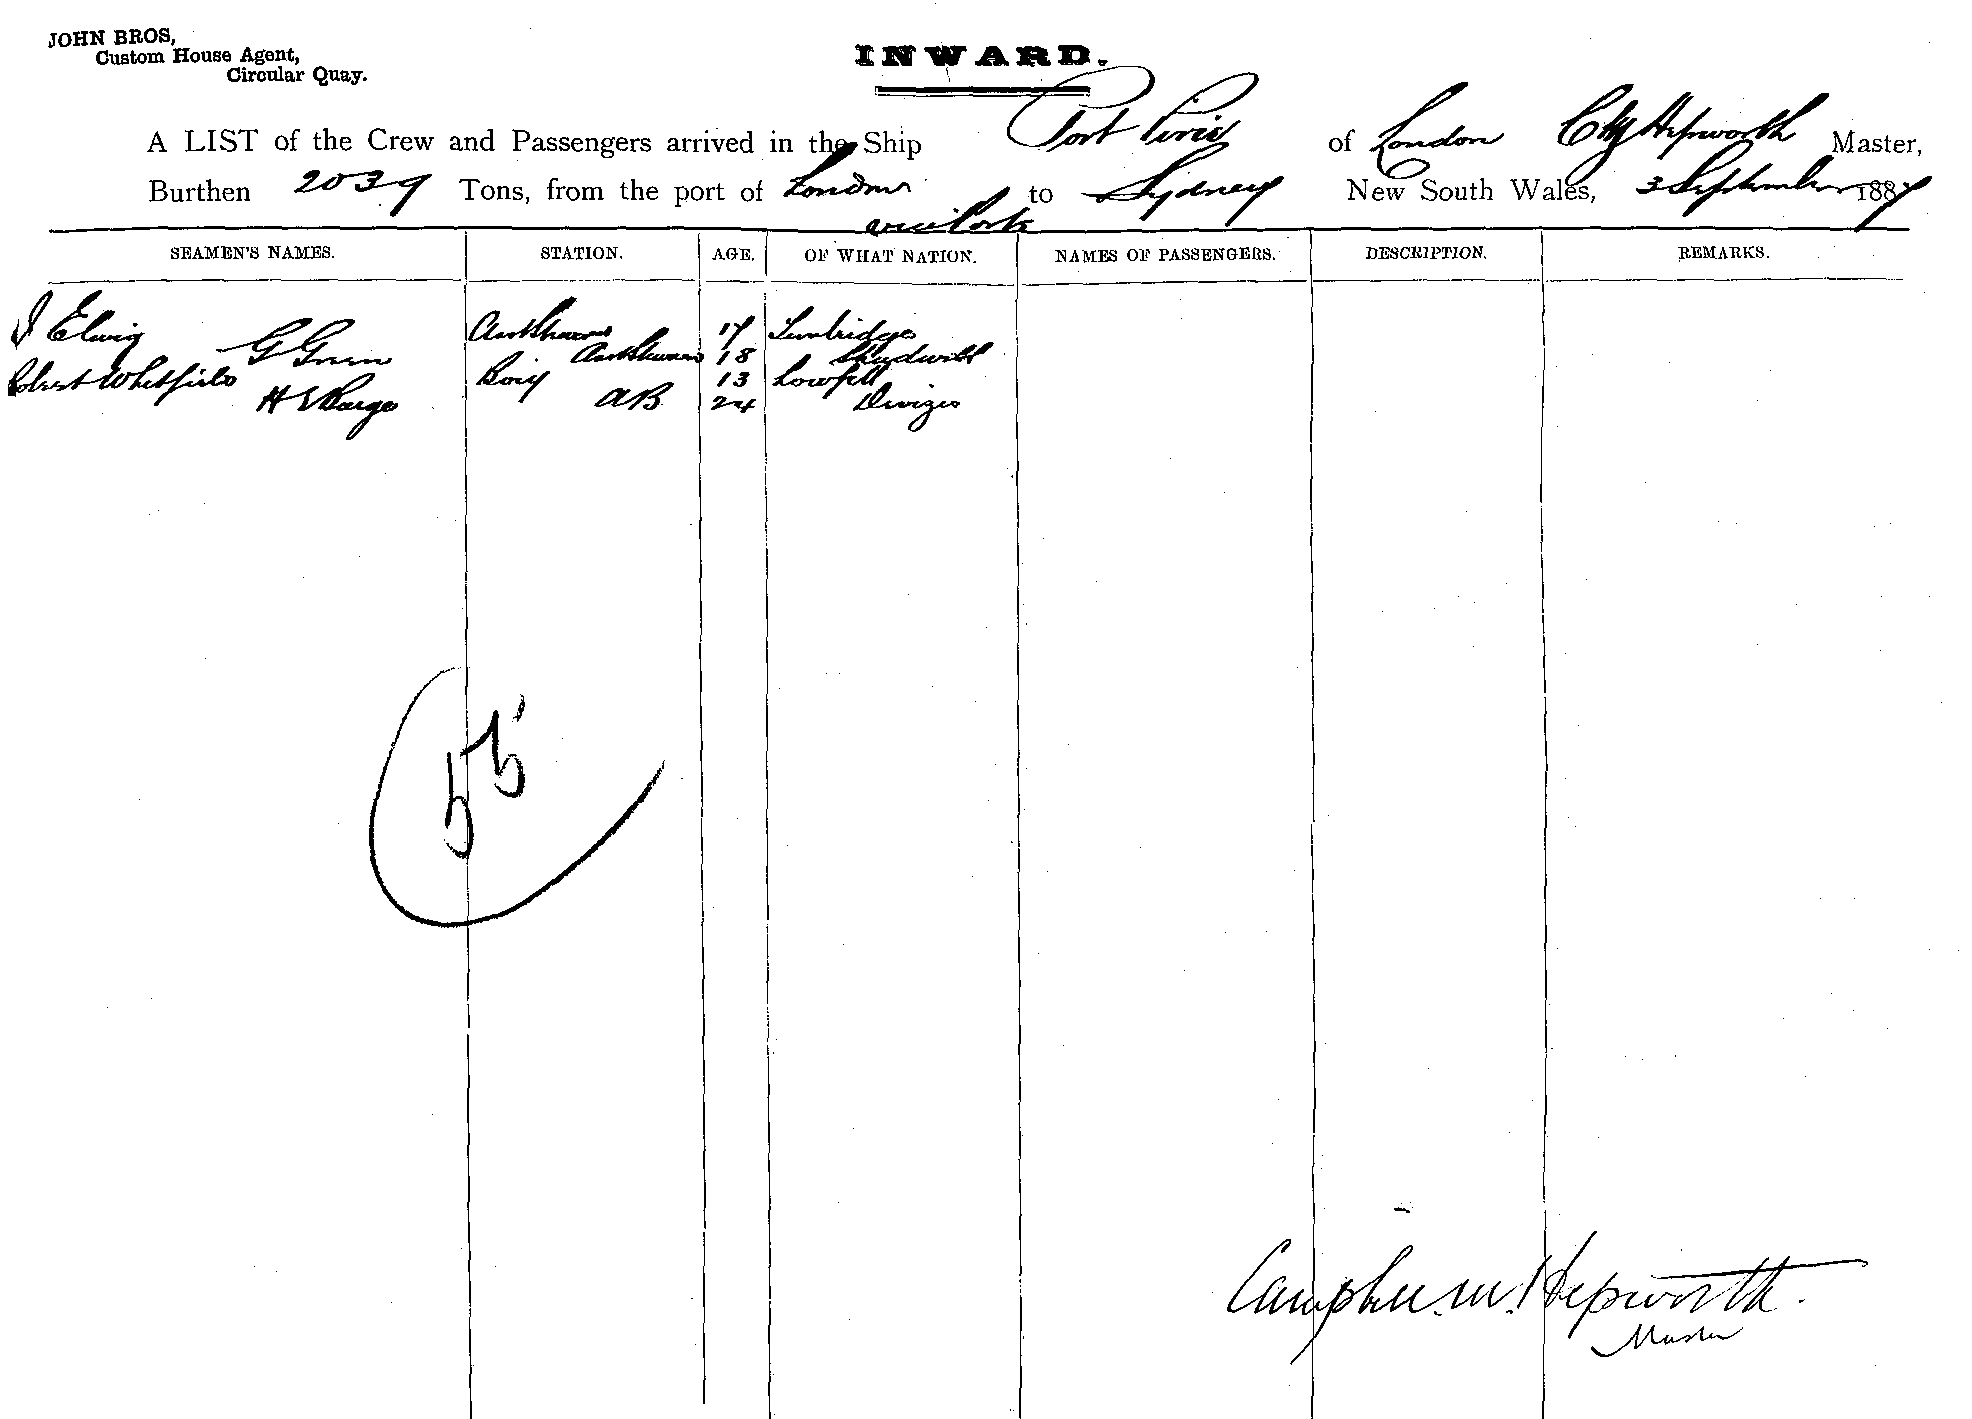 JOHN BROS,
Custom House Agent,
Circular Quay.
INWARD.
A LIST of the Crew and Passengers arrived in the Ship Port Pirie of London C M Hepworth Master,
Burthen 2039 Tons, from the port of London to Sydney New South Wales, 3 September 1887
via Cork
SEAMEN'S NAMES. STATION. AGE. OF WHAT NATION. NAMES OF PASSENGERS. DESCRIPTION. REMARKS.
J Elwig 17 Tunbridge
G Green 18 Shadwell
Robert Whitfield Boy 13 Lowfell
H E Barge AB 24 Devizes
55
Campbell. M. Hepworth.
Master